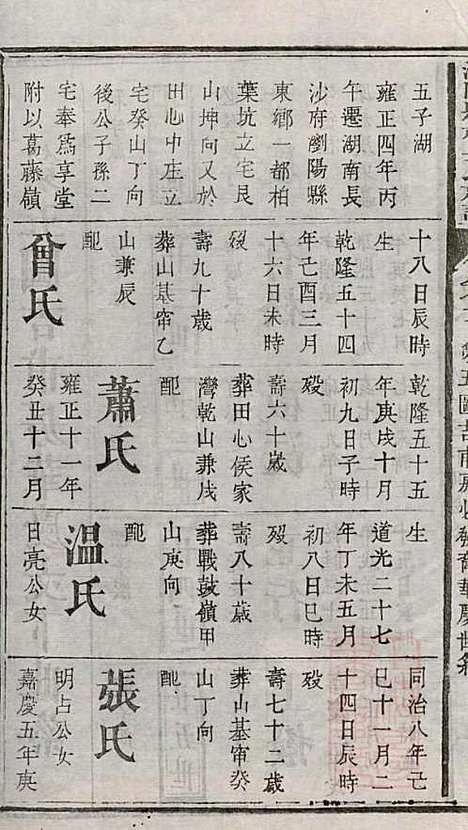 五子湖
雍正四年丙
午遷湖南長
沙府瀏陽縣
東鄉一都柏
葉坑立宅艮
山坤向又於
田心中庄立
宅癸山丁向
後公子孫二
宅奉為享堂
附以葛藤嶺
十八日辰時
生
乾隆五十四
年己酉三月
十六日未時
歿
壽九十歲
葬山基窜乙
山兼辰
配
曾氏
乾隆五十五
年庚戌十月
初九日子時
歿
壽六十歲
葬田心侯家
灣乾山兼戌
配
蕭氏
雍正十一年
癸丑十二月
生
道光二十七
年丁未五月
初八日巳時
歿
壽八十歲
葬戰鼓嶺甲
山庚向
配
溫氏
日亮公女
同治八年己
巳十一月二
十四日辰時
歿
壽七十二歲
葬山基窜癸
山丁向
配
張氏
明占公女
嘉慶五年庚